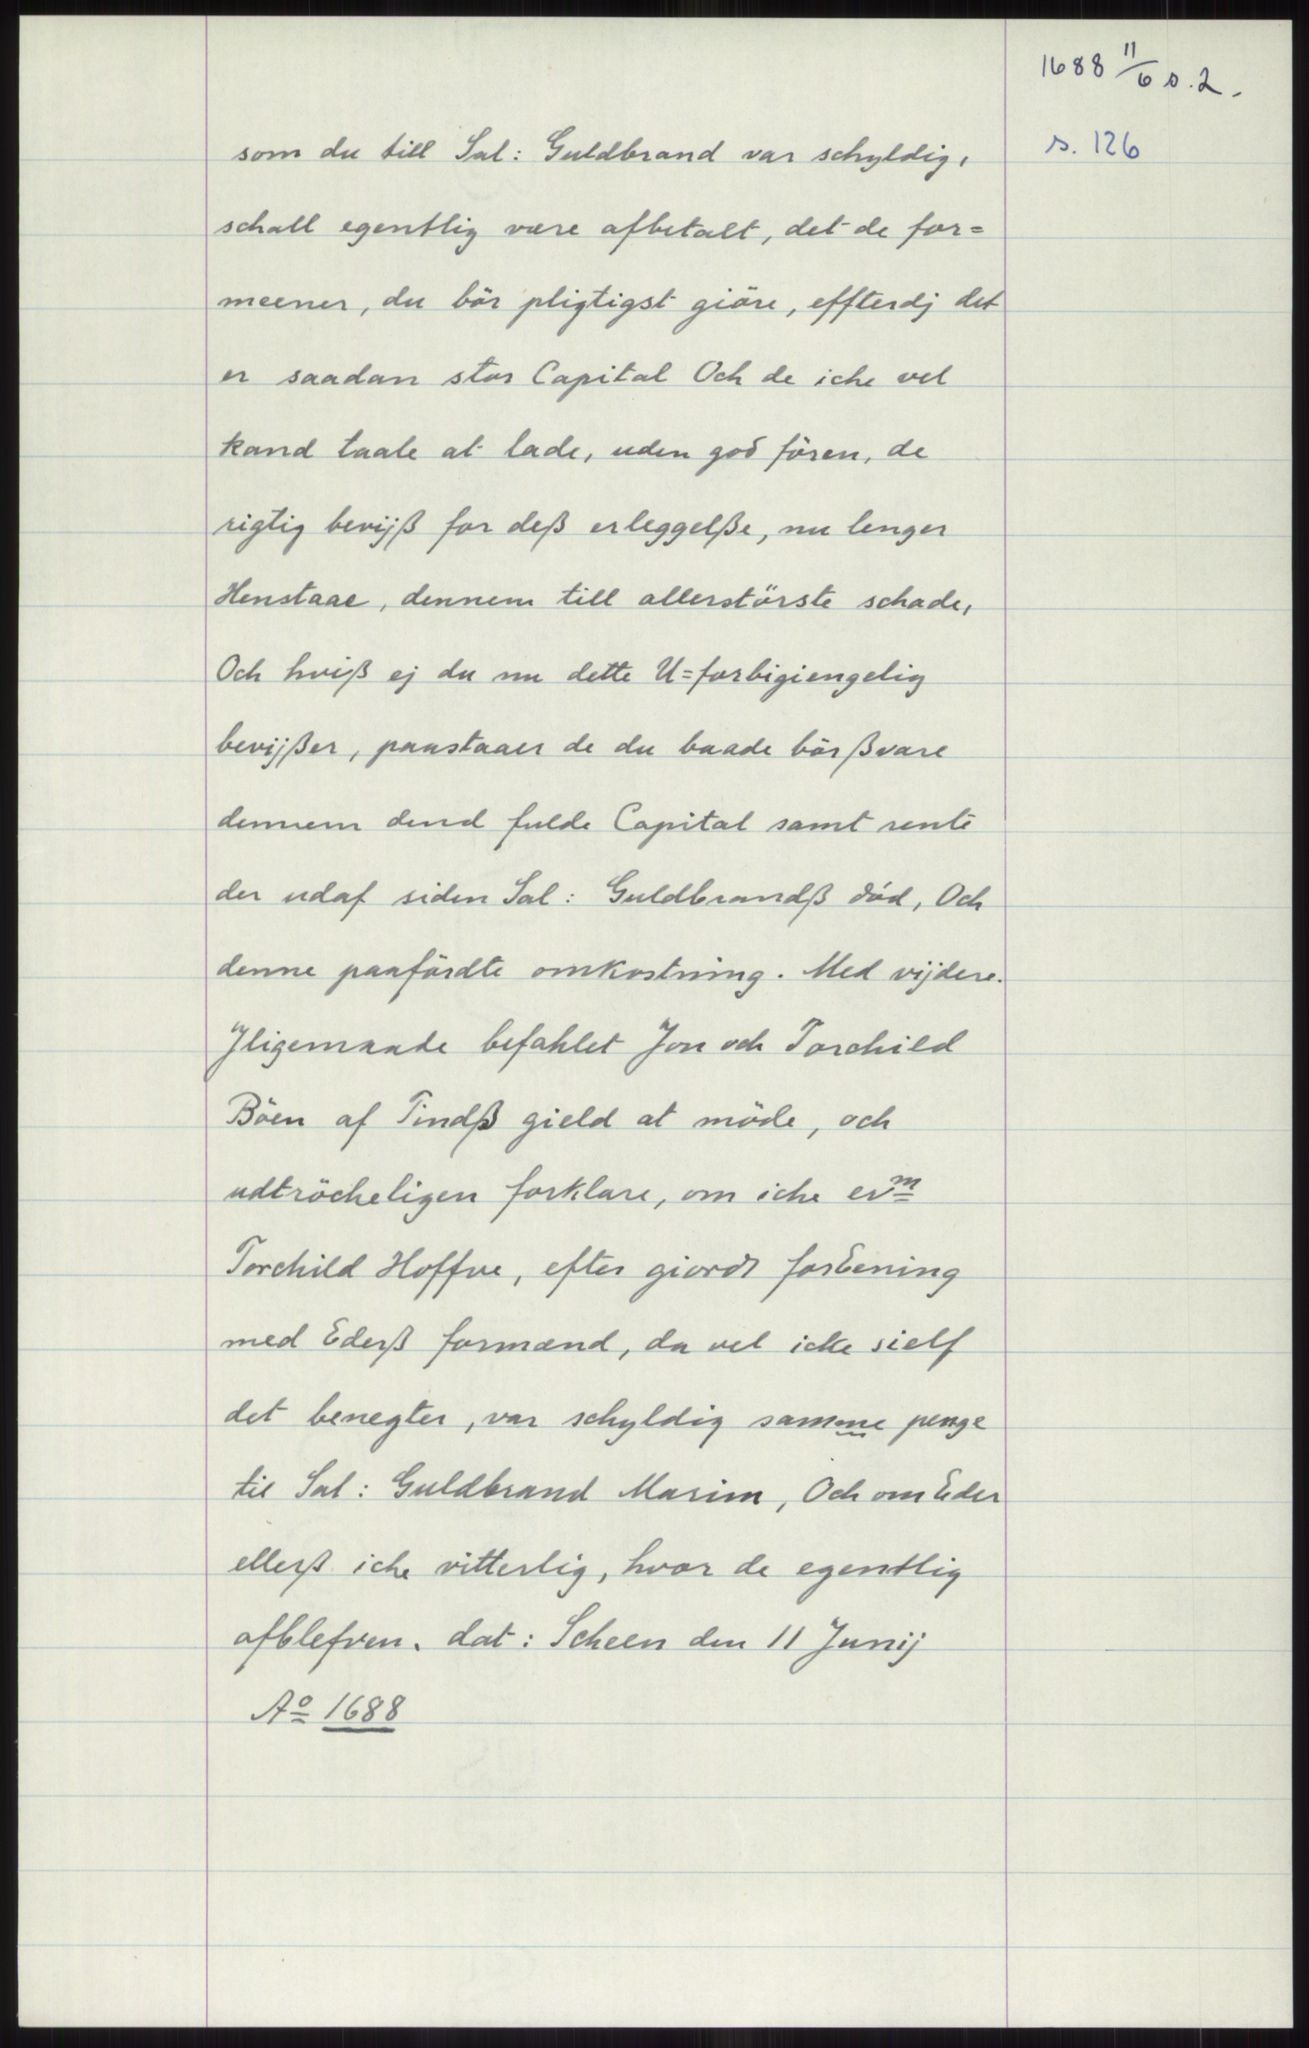 1688 11/6 s. 2.
s. 126
som du till Sal: Guldbrand var schyldig,
schall egentlig være afbetalt, det de for=
meener, du bör pligtigst giöre, effterdj det
er saadan stor Capital Och de iche vel
kand taale at lade, uden god fören, de
rigtig bevijß for deß erleggelße, nu lenger
Henstaae, dennem till allerstörste schade,
Och hviß ej du nu dette U=forbigiengelig
bevijßer, paastaaer de du baade bör ßvare
dennem dend fulde Capital samt rente
der udaf siden Sal: Guldbrandß död, Och
denne paafördte omkostning. Med vijdere.
Jligemaade befahlet Jon och Torchild
Böen af Tindß gield at möde, och
udtröcheligen forklare, om iche erm
Torchild Hoffve, efter giordt forEening
med Ederß formænd, da vel icke sielf
det benegter, var schyldig samme penge
til Sal: Guldbrand Marim, Och om Eder
ellerß iche vitterlig, hvor de egentlig
afblefven. dat: Scheen den 11 Junij
Ao 1688